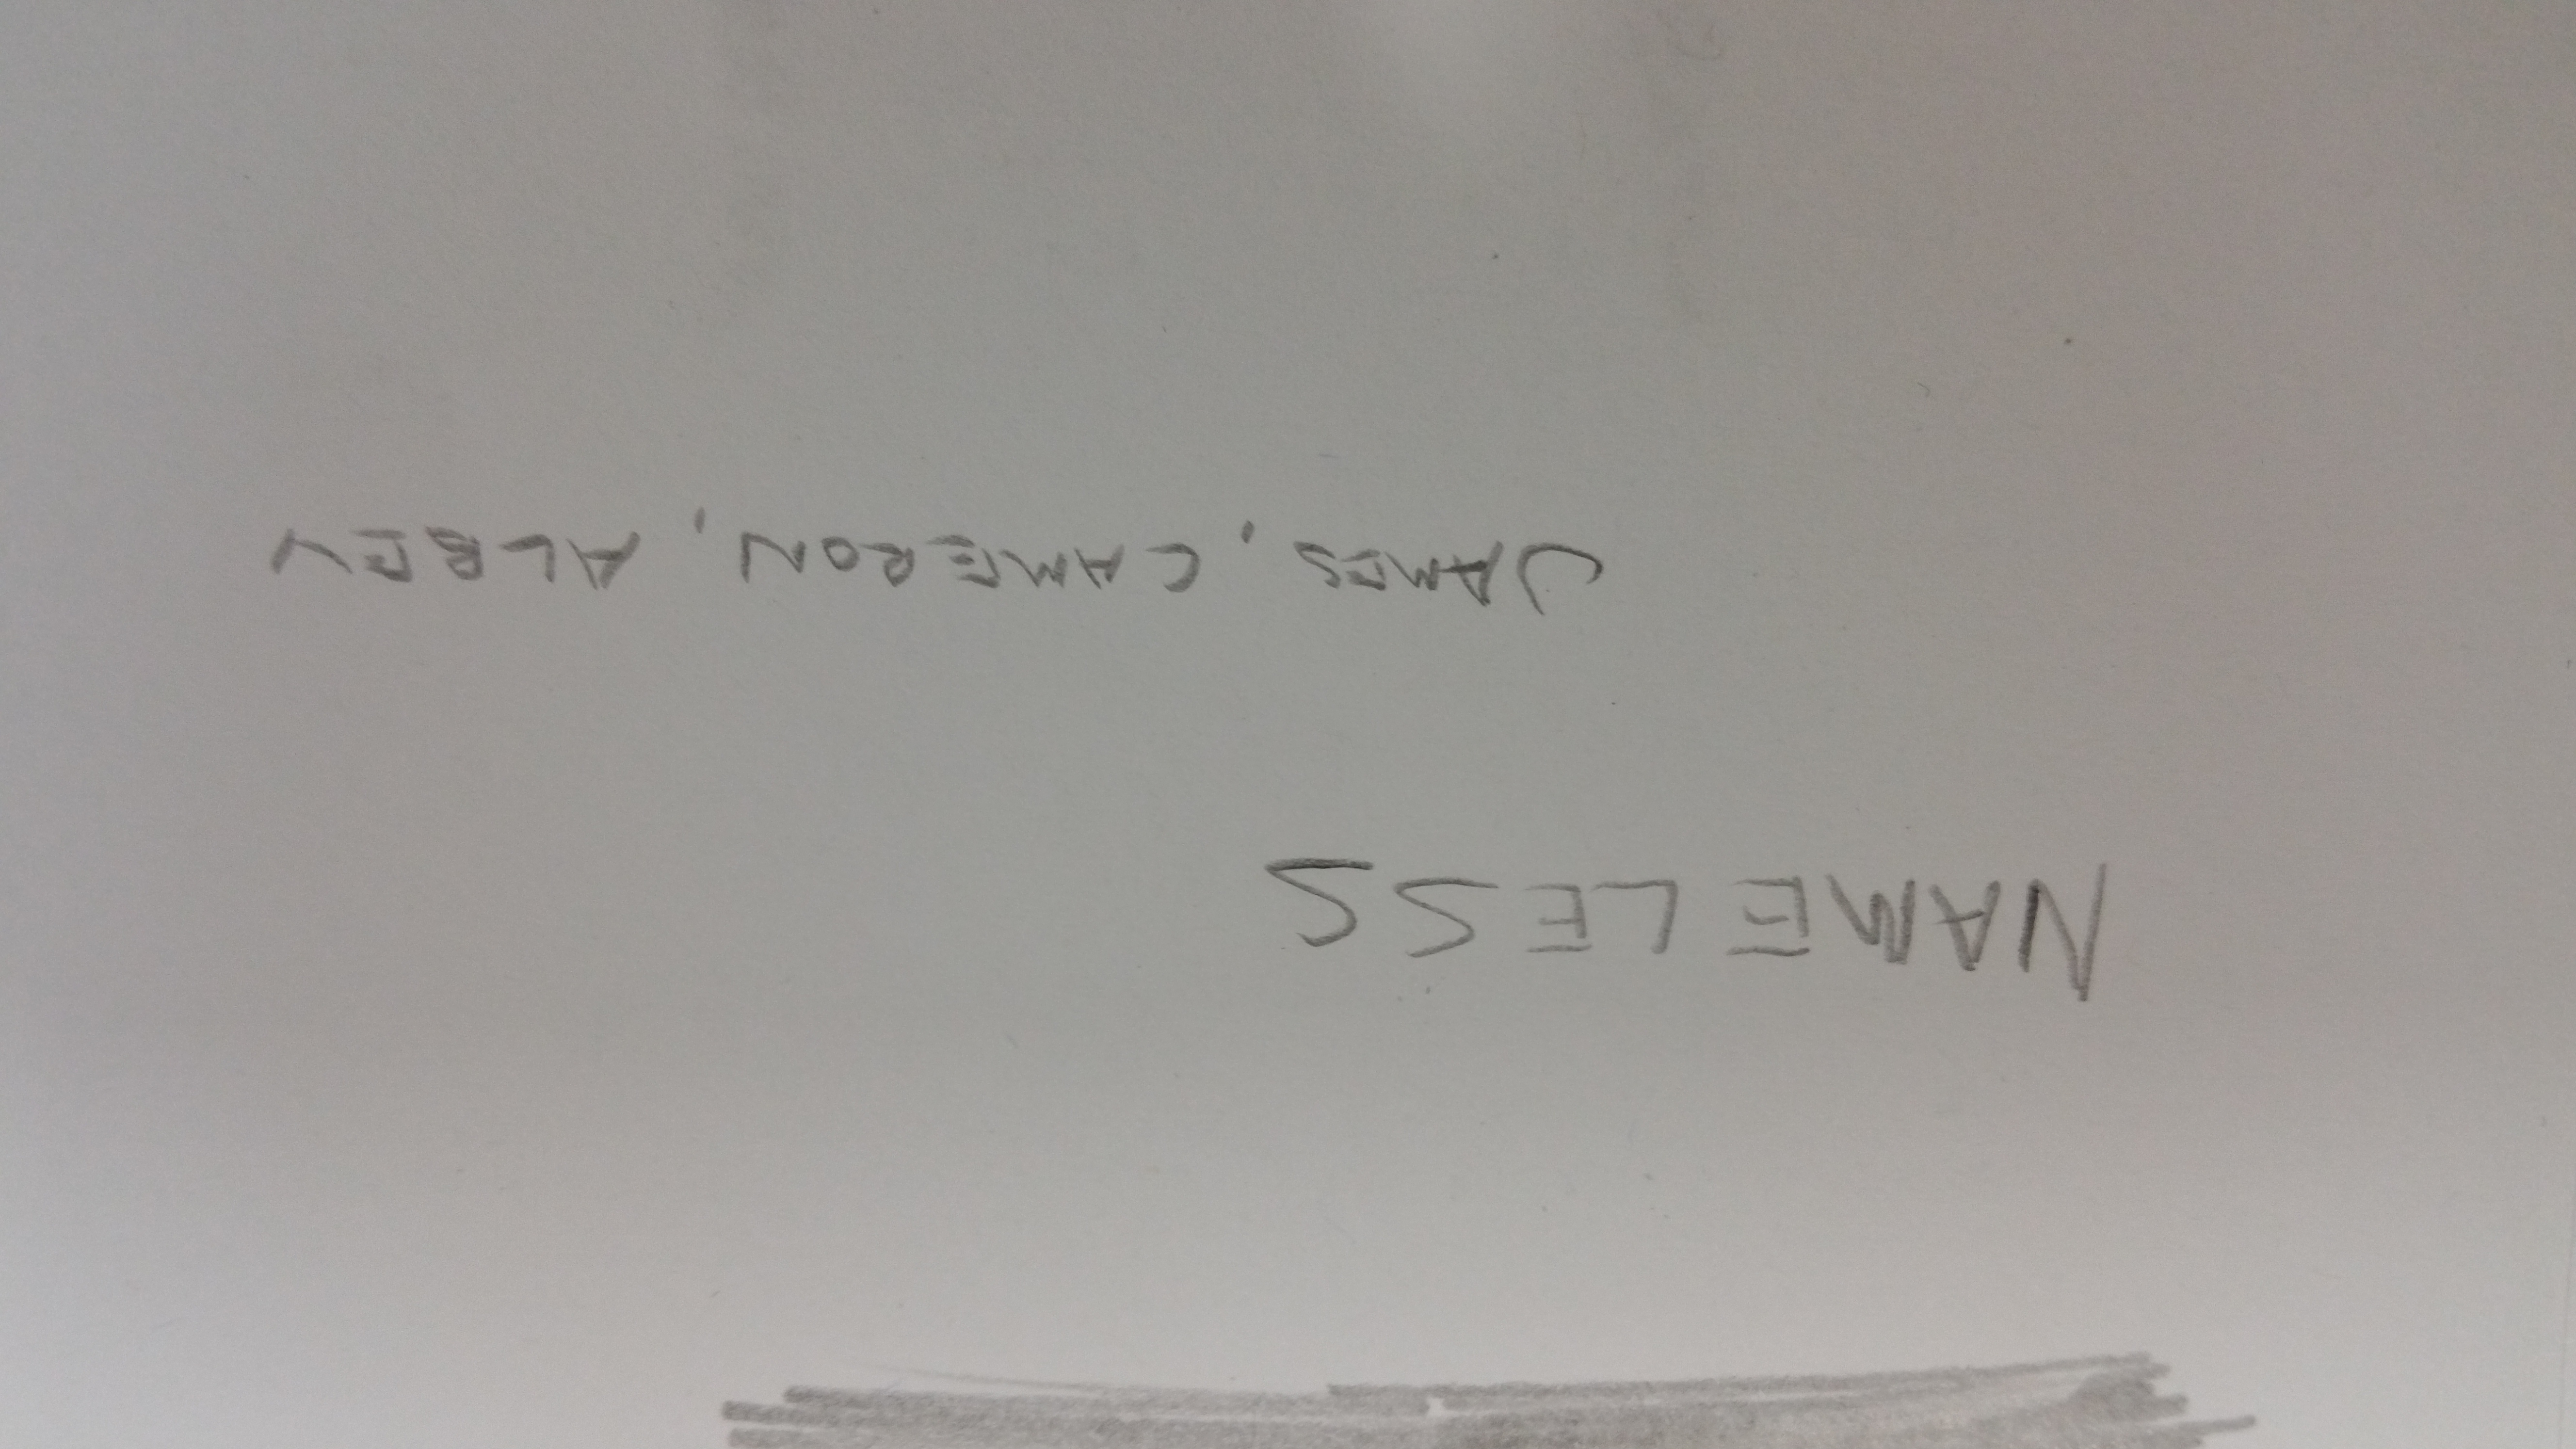 NAMELESS
JAMES, CAMERON,